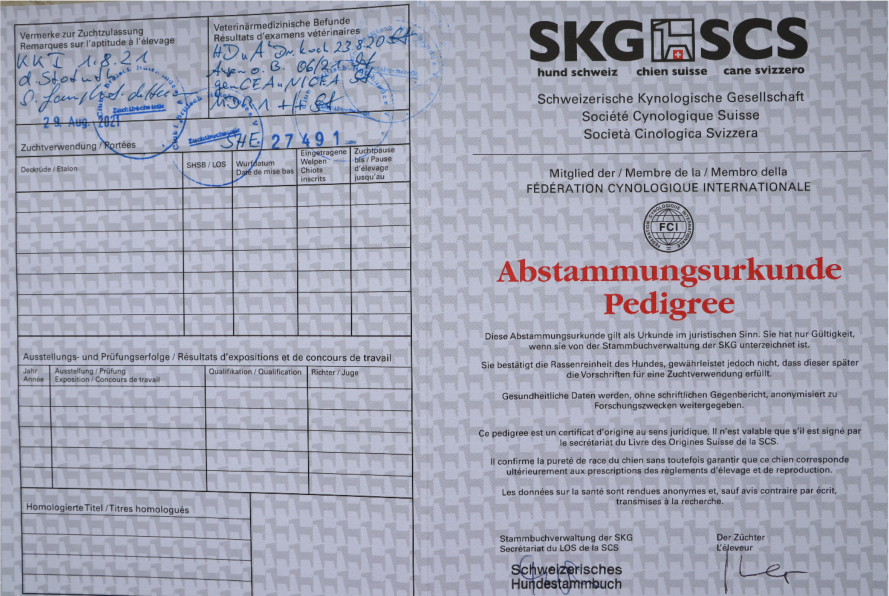 Vermerke zur Zuchtzulassung
Remarques sur l'aptitude à l'élevage
KKI 1.8.21
29. Aug. 2021
Veterinärmedizinische Befunde
Résultats d'examens vétérinaires
HD u A Dr. Koch 23.8.20
Augen o. B. 06/21
gen CEA u NICEA
MDR1 +/+
Zuchtverwendung / Portées
SHE. 27491
Deckrüde / Etalon
SHSB / LOS
Wurfdatum
Date de mise bas
Eingetragene
Welpen
Chiots
inscrits
Zuchtpause
bis / Pause
d'élevage
jusqu'au
Ausstellungs- und Prüfungserfolge / Résultats d'expositions et de concours de travail
Jahr
Année
Ausstellung / Prüfung
Exposition / Concours de travail
Qualifikation / Qualification
Richter / Juge
Homologierte Titel / Titres homologués
SKG SCS
hund schweiz chien suisse cane svizzero
Schweizerische Kynologische Gesellschaft
Société Cynologique Suisse
Società Cinologica Svizzera
Mitglied der / Membre de la / Membro della
FÉDÉRATION CYNOLOGIQUE INTERNATIONALE
FÉDÉRATION CYNOLOGIQUE INTERNATIONALE
FCI
Abstammungsurkunde
Pedigree
Diese Abstammungsurkunde gilt als Urkunde im juristischen Sinn. Sie hat nur Gültigkeit,
wenn sie von der Stammbuchverwaltung der SKG unterzeichnet ist.
Sie bestätigt die Rassenreinheit des Hundes, gewährleistet jedoch nicht, dass dieser später
die Vorschriften für eine Zuchtverwendung erfüllt.
Gesundheitliche Daten werden, ohne schriftlichen Gegenbericht, anonymisiert zu
Forschungszwecken weitergegeben.
Ce pedigree est un certificat d'origine au sens juridique. Il n'est valable que s'il est signé par
le secrétariat du Livre des Origines Suisse de la SCS.
Il confirme la pureté de race du chien sans toutefois garantir que ce chien corresponde
ultérieurement aux prescriptions des règlements d'élevage et de reproduction.
Les données sur la santé sont rendues anonymes et, sauf avis contraire par écrit,
transmises à la recherche.
Stammbuchverwaltung der SKG
Secrétariat du LOS de la SCS
Der Züchter
L'éleveur
Schweizerisches
Hundestammbuch